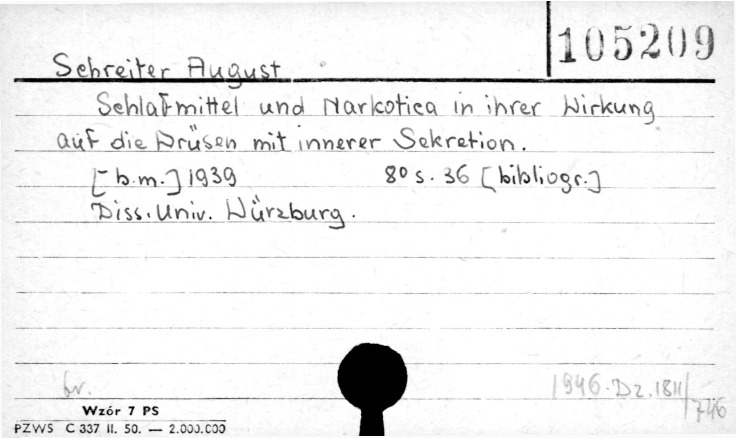 105209
Schreiter August
Schlafmittel und Narkotica in ihrer Wirkung
auf die Drüsen mit innerer Sekretion.
[b.m.] 1939 8° s. 36 [bibliogr.]
Diss. Univ. Würzburg.
br. 1946. Dz. 1811/746
Wzór 7 PS
PZWS C 337 II. 50. — 2.000.000